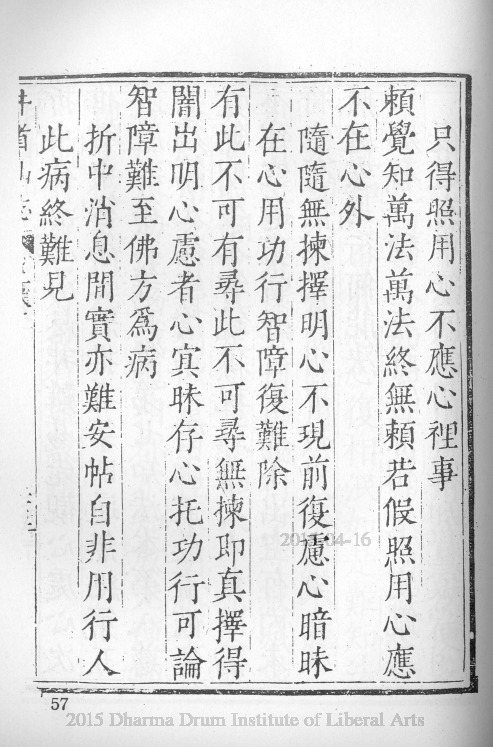 只得照用心不應心裡事
賴覺知萬法萬法終無賴若假照用心應
不在心外
隨隨無揀擇明心不現前復慮心暗昧
在心用功行智障復難除
有此不可有尋此不可尋無揀即真擇得
闇出明心慮者心冥昧存心托功行可論
智障難至佛方為病
折中消息間實亦難安帖自非用行人
此病終難見
57
2015 Dharma Drum Institute of Liberal Arts